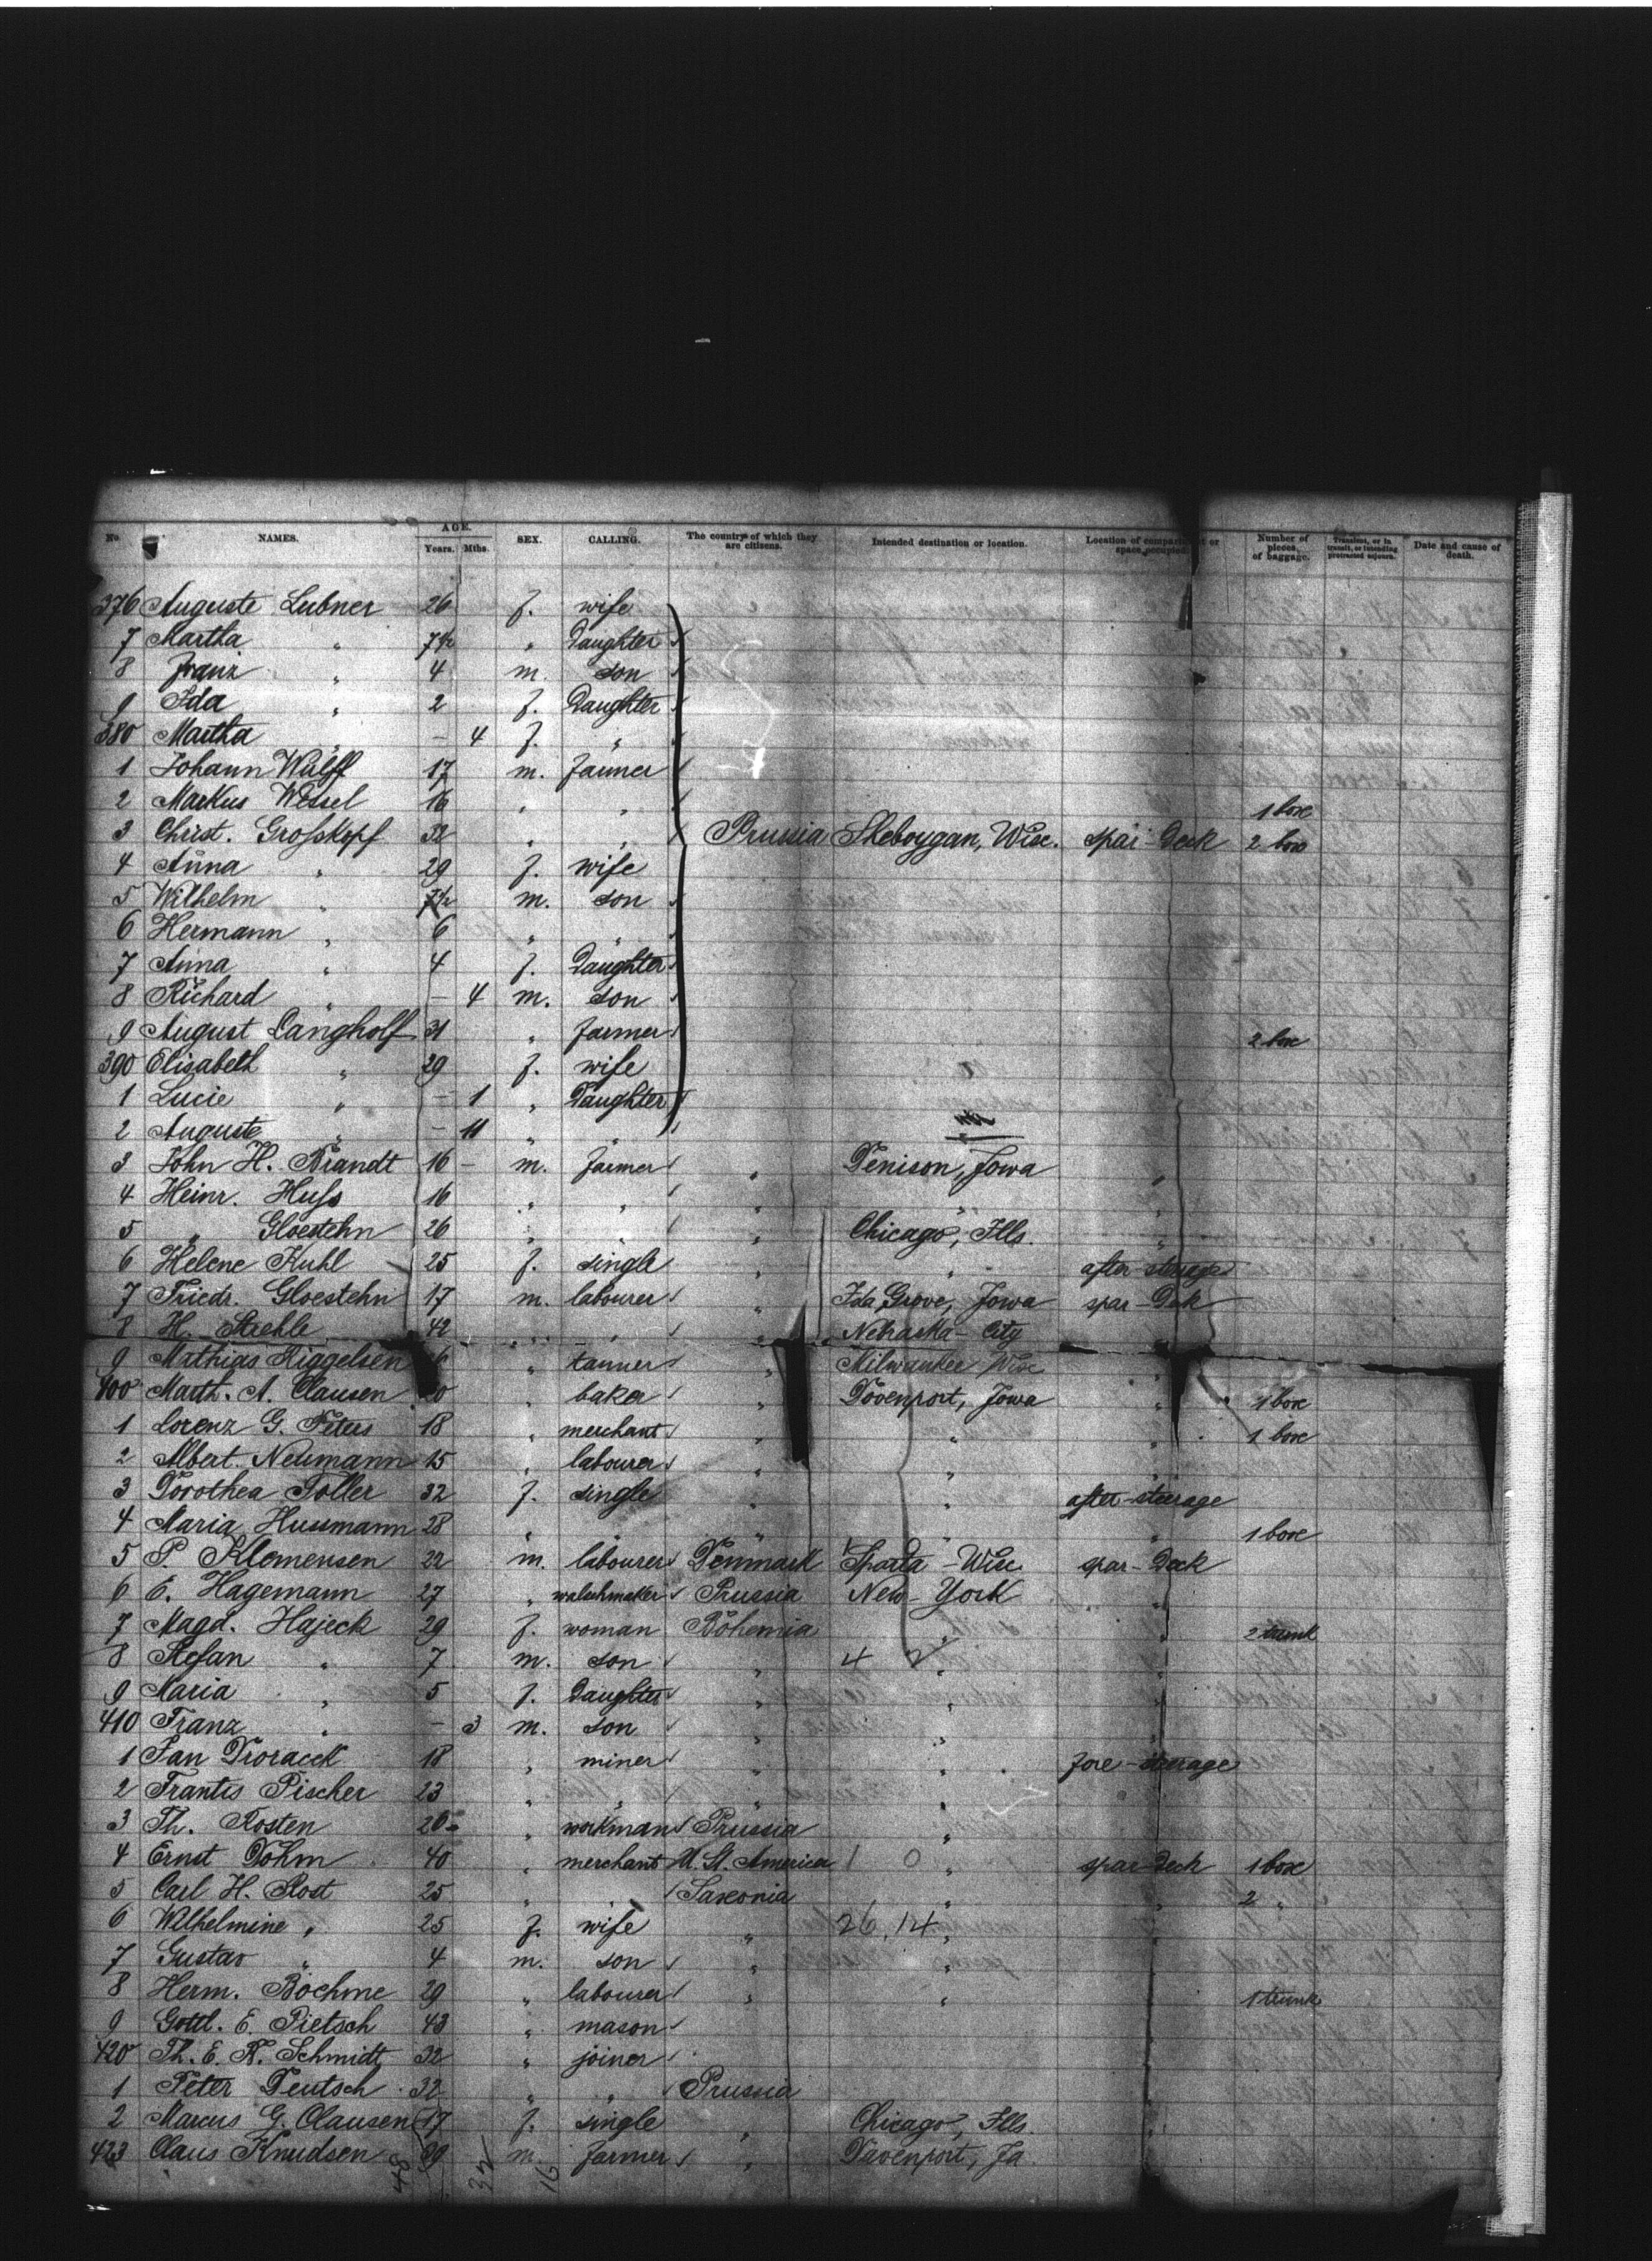 No NAMES. AGE. Years. Mths. SEX. CALLING. The country of which they are citizens. Intended destination or location. Location of compartment or space occupied. Number of pieces of baggage. Transient, or in transit, or intending protracted sojourn. Date and cause of death.
376 Auguste Lubner 26 f. wife
7 Martha " 7 1/2 " Daughter
8 Franz " 4 m. son
9 Ida " 2 f. Daughter
380 Martha " – 4 f. "
1 Johann Wulff 17 m. farmer
2 Markus Wessel 16 " " 1 box
3 Christ. Grosskopf 32 " " Prussia Sheboygan, Wisc. spar-Deck 2 box
4 Anna " 29 f. wife
5 Wilhelm " 7 1/2 m. son
6 Hermann " 6 " "
7 Anna " 4 f. Daughter
8 Richard " – 4 m. son
9 August Langholf 31 " farmer 2 box
390 Elisabeth " 29 f. wife
1 Lucie " – 1 " Daughter
2 Auguste " – 11 " "
3 John H. Brandt 16 – m. farmer " Denison, Iowa "
4 Heinr. Huss 16 " " " " "
5 " Gloestehn 26 " " " Chicago, Ills. "
6 Helene Kuhl 25 f. single " " after steerage
7 Friedr. Gloestehn 17 m. labourer " Ida Grove, Iowa spar-Dek
8 H. Staehle 42 " " " Nebraska-City
9 Mathias Higgelsen 6 " tanner " Milwaukee Wisc "
400 Marth. A. Clausen 20 " baker " Dovenport, Iowa " 1 box
1 Lorenz G. Peters 18 " merchant " " " 1 box
2 Albert Neumann 15 " labourer " " "
3 Dorothea Toller 32 f. single " " after-steerage
4 Maria Husmann 28 " " " " " 1 box
5 P. Klemensen 22 m. labourer Denmark Sparta-Wisc spar-Deck
6 E. Hagemann 27 " watschmaker Prussia New-York "
7 Magd. Hajeck 29 f. woman Bohemia " " 2 trunk
8 Stefan " 7 m. son " 4 2 " "
9 Maria " 5 f. Daughter " " "
410 Franz " – 3 m. son " " "
1 Jan Dvoracek 18 " miner " " fore-steerage
2 Frantis Pischer 23 " " " " "
3 Th. Rosten 26 " workman Prussia "
4 Ernst Döhm 40 " merchant U. St. America 1 0 " spar-Deck 1 box
5 Carl H. Rost 25 " " Saxonia " 2 "
6 Wilhelmine " 25 f. wife " 26,14 "
7 Gustav " 4 m. son " " "
8 Herm. Böehme 29 " labourer " " 1 trunk
9 Gottl. E. Pietsch 43 " mason
420 Th. E. R. Schmidt 32 " joiner
1 Peter Deutsch 32 " " Prussia
2 Marcus G. Clausen 17 f. single " Chicago, Ills. "
423 Claus Knudsen 29 m. farmer " Davenport, Ja.
48 32 16